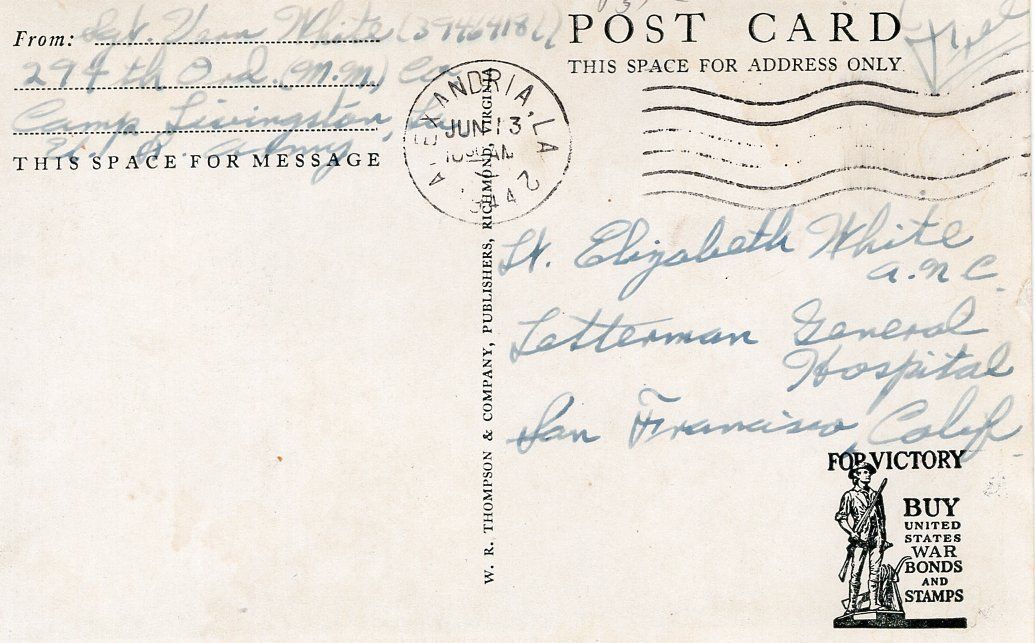 From: Sgt. Vern White (39464186)
294th Ord. (M.M.) Co
Camp Livingston, La
U.S. Army
THIS SPACE FOR MESSAGE
POST CARD
THIS SPACE FOR ADDRESS ONLY
Free
ALEXANDRIA, LA
JUN 13
10 30 AM
1944
2
W. R. THOMPSON & COMPANY, PUBLISHERS, RICHMOND, VIRGINIA
Lt. Elizabeth White
A.N.C.
Letterman General
Hospital
San Francisco, Calif.
FOR VICTORY
BUY
UNITED
STATES
WAR
BONDS
AND
STAMPS